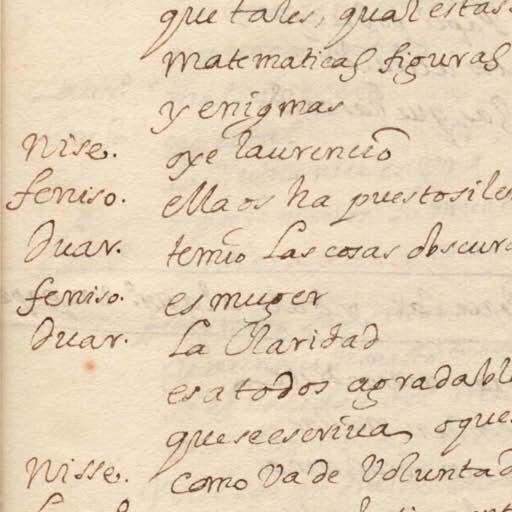 que tales, qual estas
matematicas figuras
y enigmas
Nise. oye laurencio
feniso. ella os ha puesto silen
Duar. temio las cosas obscura
feniso. es muger
Duar. La Claridad
es a todos agradable
que se escriua, o que
Nisse. como Va de Voluntad